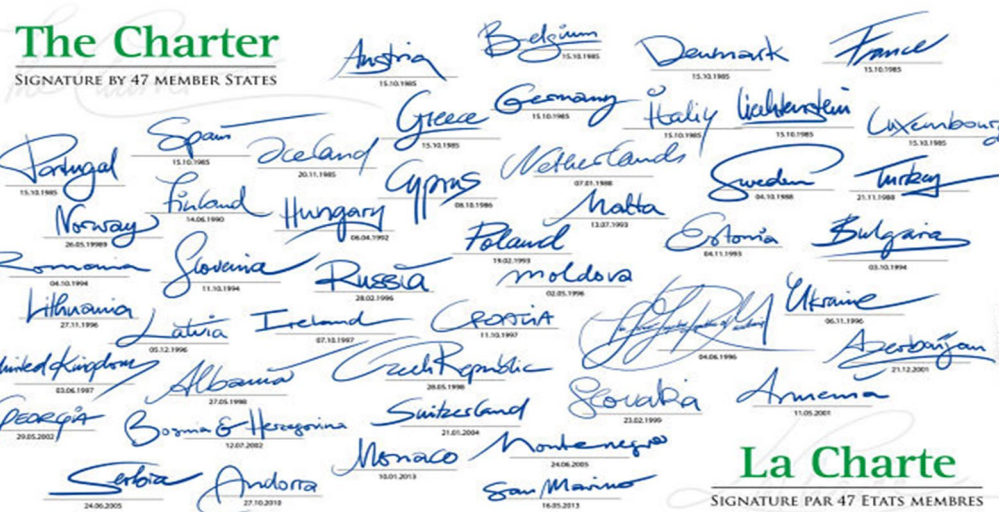 The Charter
SIGNATURE BY 47 MEMBER STATES
Austria
15.10.1985
Belgium
15.10.1985
Denmark
15.10.1985
France
15.10.1985
Greece
15.10.1985
Germany
15.10.1985
Italiy
15.10.1985
Liechtenstein
15.10.1985
Luxembourg
15.10.1985
Portugal
15.10.1985
Spain
15.10.1985
Iceland
20.11.1985
Cyprus
08.10.1986
Netherlands
07.01.1988
Sweden
04.10.1988
Turkey
21.11.1988
Norway
26.05.19989
Finland
14.06.1990
Hungary
06.04.1992
Poland
19.02.1993
Malta
13.07.1993
Estonia
04.11.1993
Bulgaria
03.10.1994
Romania
04.10.1994
Slovenia
11.10.1994
Russia
28.02.1996
Moldova
02.05.1996
Ukraine
06.11.1996
Lithuania
27.11.1996
Latvia
05.12.1996
Ireland
07.10.1997
CROATIA
11.10.1997
04.06.1996
Azerbaijan
21.12.2001
United Kingdom
03.06.1997
Albania
27.05.1998
Czech Republic
28.05.1998
Slovakia
23.02.1999
Armenia
11.05.2001
GEORGIA
29.05.2002
Bosnia & Herzegovina
12.07.2002
Switzerland
21.01.2004
Monaco
10.01.2013
Montenegro
24.06.2005
Serbia
24.06.2005
Andorra
27.10.2010
San Marino
16.05.2013
La Charte
SIGNATURE PAR 47 ETATS MEMBRES